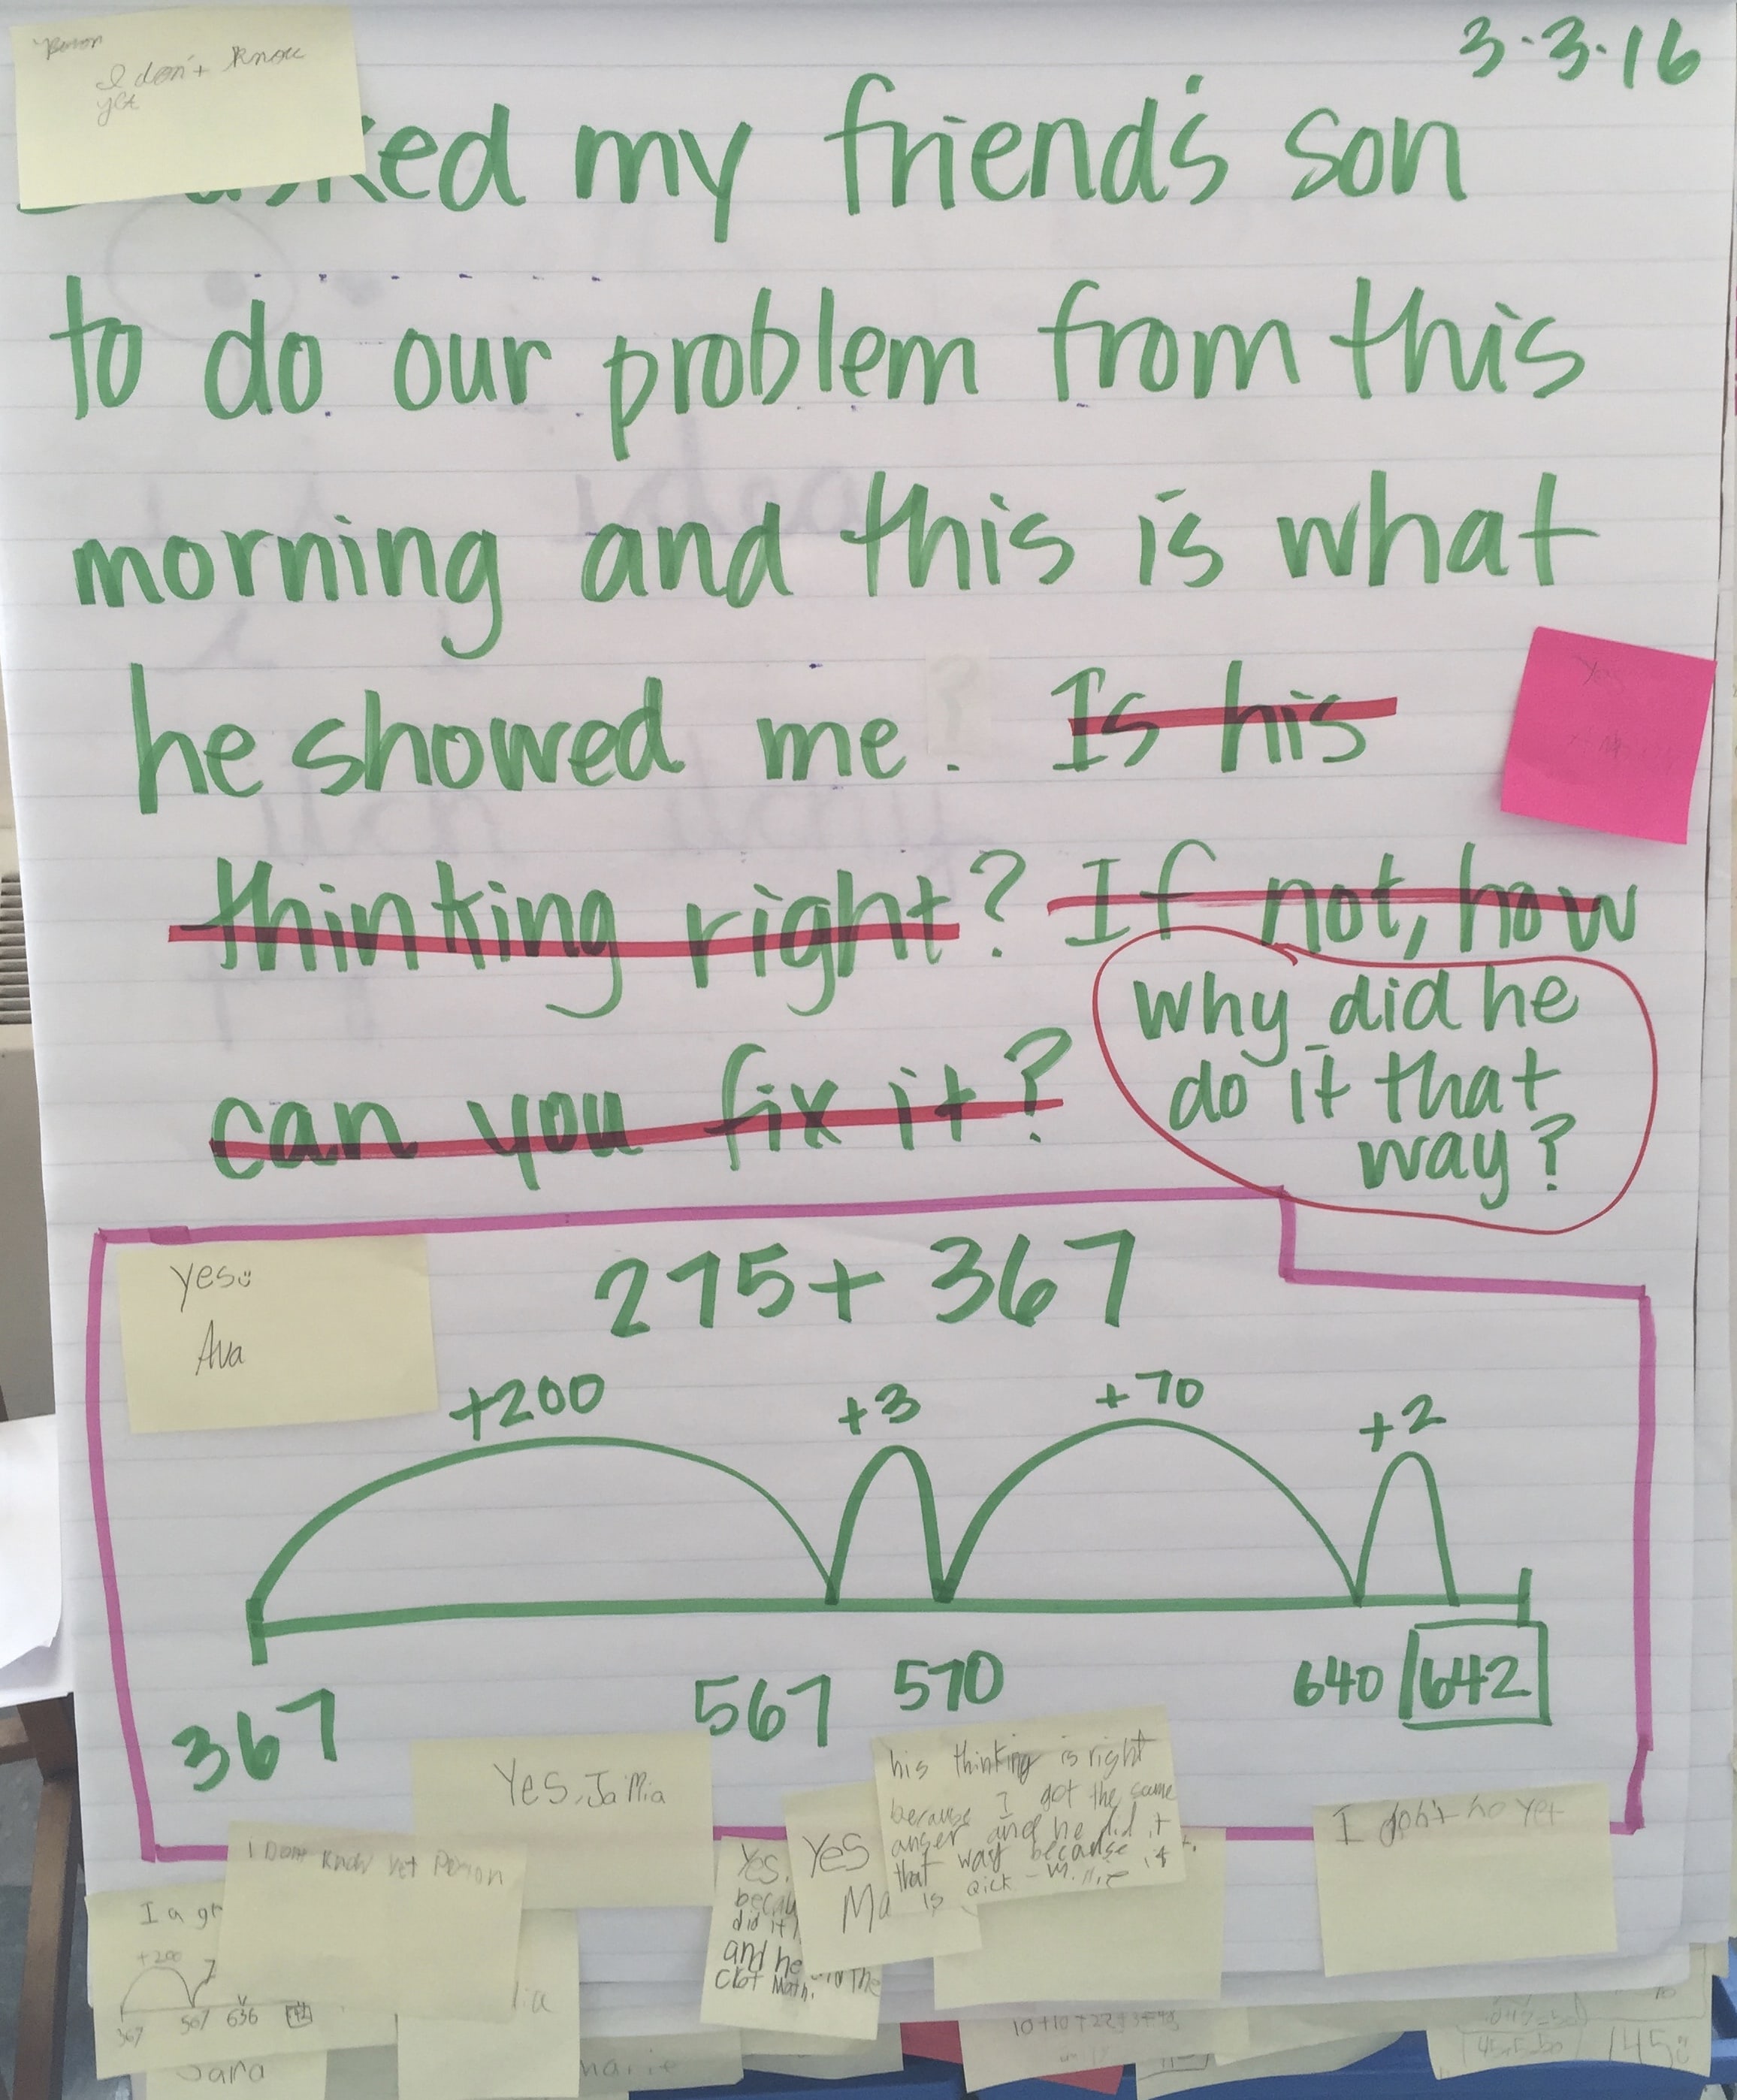 3.3.16
I don't know
yet
asked my friend's son
to do our problem from this
morning and this is what
he showed me? Is his
thinking right? If not, how
can you fix it?
why did he
do it that
way?
Yes
yes
Ava
275 + 367
+200 +3 +70 +2
367 567 570 640 642
Yes, JaMia
his thinking is right
because I got the same
anser and he did it
that way because it
is qick
I don't no yet
I Dont know Yet Person
Yes
Ma
Yes.
becau
did it
and he
Math. The
I a gr
+200 7
367 567 636
lia
10+10+22+3=45
Sara
marie
45+5=50
145